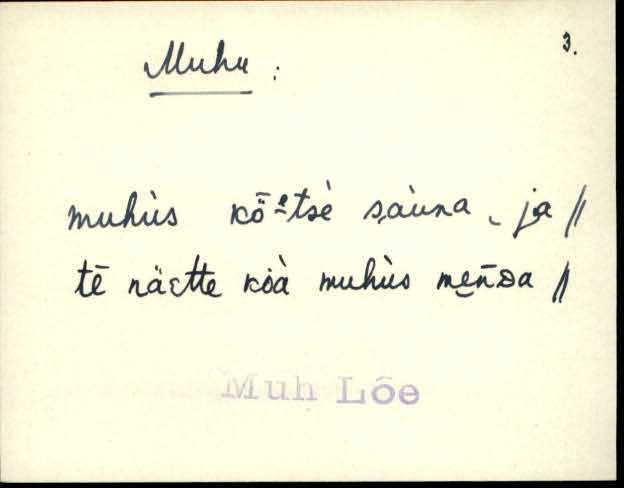 3.
Muhu :
muhùs kȫᵉtsè sàuna, ja //
tē näette kòà muhùs mēn̄ᴅa //
Muh Lõe